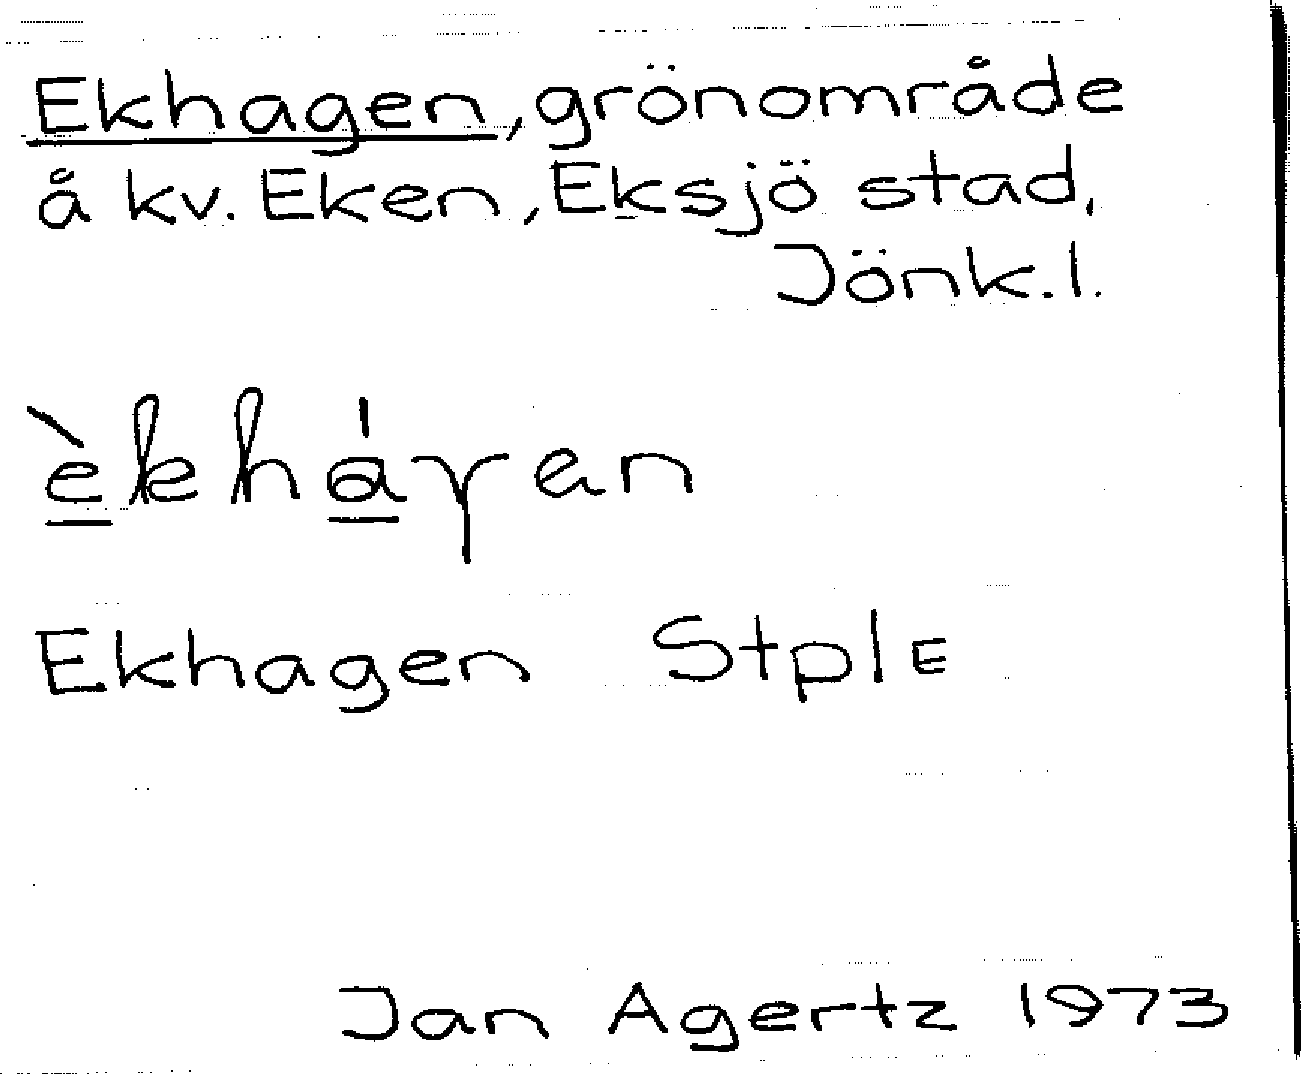 Ekhagen, grönområde
å kv. Eken, Eksjö stad,
Jönk. l.
èkháγen
Ekhagen Stpl E
Jan Agertz 1973